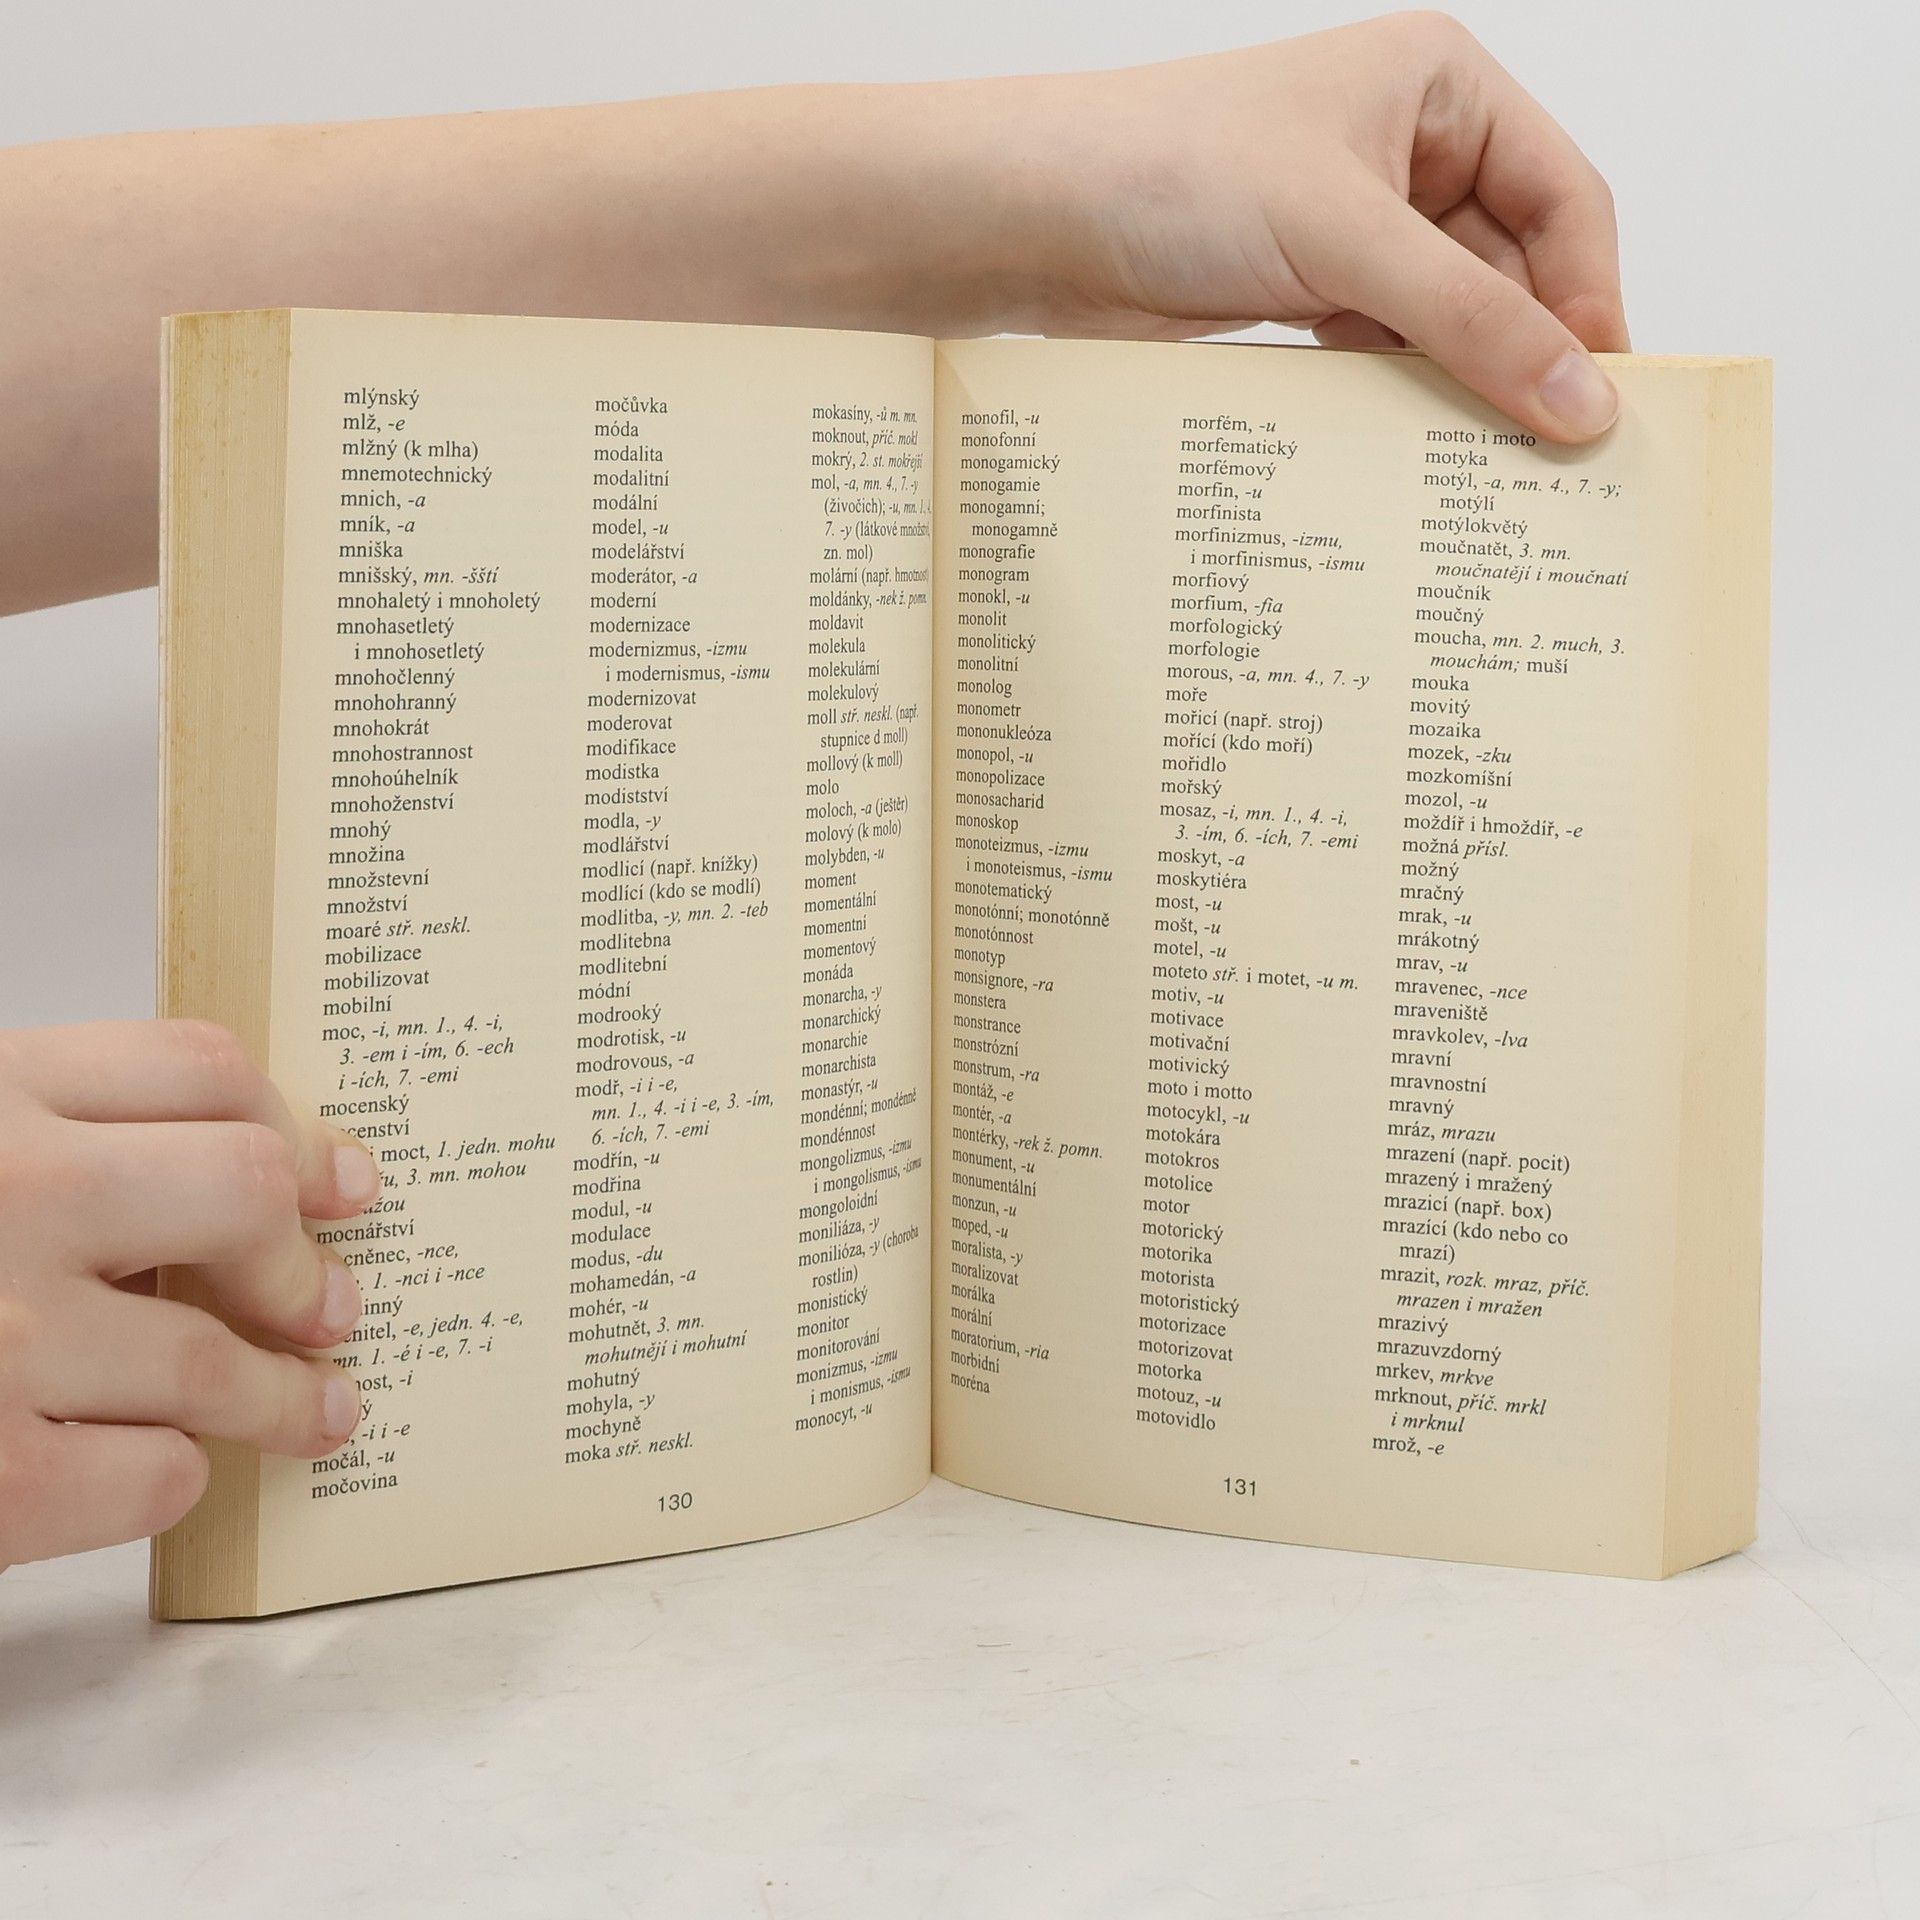 mlýnský
mlž, -e
mlžný (k mlha)
mnemotechnický
mnich, -a
mník, -a
mniška
mnišský, mn. -šští
mnohaletý i mnoholetý
mnohasetletý
i mnohosetletý
mnohočlenný
mnohohranný
mnohokrát
mnohostrannost
mnohoúhelník
mnohoženství
mnohý
množina
množstevní
množství
moaré stř. neskl.
mobilizace
mobilizovat
mobilní
moc, -i, mn. 1., 4. -i,
3. -em i -ím, 6. -ech
i -ích, 7. -emi
mocenský
i moct, 1. jedn. mohu
3. mn. mohou
mocnářství
-nce,
1. -nci i -nce
-e, jedn. 4. -e,
mn. 1. -é i -e, 7. -i
-i
-i i -e
močál, -u
močovina
močůvka
móda
modalita
modalitní
modální
model, -u
modelářství
moderátor, -a
moderní
modernizace
modernizmus, -izmu
i modernismus, -ismu
modernizovat
moderovat
modifikace
modistka
modiství
modla, -y
modlářství
modlicí (např. knížky)
modlící (kdo se modlí)
modlitba, -y, mn. 2. -teb
modlitebna
modlitební
módní
modrooký
modrotisk, -u
modrovous, -a
modř, -i i -e,
mn. 1., 4. -i i -e, 3. -ím,
6. -ích, 7. -emi
modřín, -u
modřina
modul, -u
modulace
modus, -du
mohamedán, -a
mohér, -u
mohutnět, 3. mn.
mohutnějí i mohutní
mohutný
mohyla, -y
mochyně
moka stř. neskl.
mokasíny, -ů m. mn.
moknout, příč. mokl
mokrý, 2. st. mokřejší
mol, -a, mn. 4., 7. -y
(živočich); -u, mn. 1., 4.,
7. -y (látkové množství,
zn. mol)
molární (např. hmotnost)
moldánky, -nek ž. pomn.
moldavit
molekula
molekulární
molekulový
moll stř. neskl. (např.
stupnice d moll)
mollový (k moll)
molo
moloch, -a (ještěr)
molový (k molo)
molybden, -u
moment
momentální
momentní
momentový
monáda
monarcha, -y
monarchický
monarchie
monarchista
monastýr, -u
mondénní; mondénně
mondénnost
mongolizmus, -izmu
i mongolismus, -ismu
mongoloidní
moniliáza, -y
monilióza, -y (choroba
rostlin)
monistický
monitor
monitorování
monizmus, -izmu
i monismus, -ismu
monocyt, -u
130
monofil, -u
monofonní
monogamický
monogamie
monogamní;
monogamně
monografie
monogram
monokl, -u
monolit
monolitický
monolitní
monolog
monometr
mononukleóza
monopol, -u
monopolizace
monosacharid
monoskop
monoteizmus, -izmu
i monoteismus, -ismu
monotematický
monotónní; monotónně
monotónnost
monotyp
monsignore, -ra
monstera
monstrance
monstrózní
monstrum, -ra
montáž, -e
montér, -a
montérky, -rek ž. pomn.
monument, -u
monumentální
monzun, -u
moped, -u
moralista, -y
moralizovat
morálka
morální
moratorium, -ria
morbidní
moréna
morfém, -u
morfematický
morfémový
morfin, -u
morfinista
morfinizmus, -izmu,
i morfinismus, -ismu
morfiový
morfium, -fia
morfologický
morfologie
morous, -a, mn. 4., 7. -y
moře
mořicí (např. stroj)
mořící (kdo moří)
mořidlo
mořský
mosaz, -i, mn. 1., 4. -i,
3. -ím, 6. -ích, 7. -emi
moskyt, -a
moskytiéra
most, -u
mošt, -u
motel, -u
moteto stř. i motet, -u m.
motiv, -u
motivace
motivační
motivický
moto i motto
motocykl, -u
motokára
motokros
motolice
motor
motorický
motorika
motorista
motoristický
motorizace
motorizovat
motorka
motouz, -u
motovidlo
motto i moto
motyka
motýl, -a, mn. 4., 7. -y;
motýlí
motýlokvětý
moučnatět, 3. mn.
moučnatějí i moučnatí
moučník
moučný
moucha, mn. 2. much, 3.
mouchám; muší
mouka
movitý
mozaika
mozek, -zku
mozkomíšní
mozol, -u
moždíř i hmoždíř, -e
možná přísl.
možný
mračný
mrak, -u
mrákotný
mrav, -u
mravenec, -nce
mraveniště
mravkolev, -lva
mravní
mravnostní
mravný
mráz, mrazu
mrazení (např. pocit)
mrazený i mražený
mrazicí (např. box)
mrazící (kdo nebo co
mrazí)
mrazit, rozk. mraz, příč.
mrazen i mražen
mrazivý
mrazuvzdorný
mrkev, mrkve
mrknout, příč. mrkl
i mrknul
mrož, -e
131